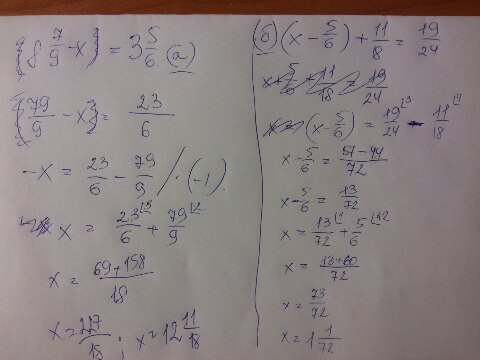 (8 7/9 - x) = 3 5/6 (a)
(79/9 - x) = 23/6
-x = 23/6 - 79/9 / · (-1)
x = 23/6 + 79/9
x = 69+158/18
x = 227/18 ; x = 12 11/18
(б) (x - 5/6) + 11/18 = 19/24
x - 5/6 + 11/18 = 19/24
(x - 5/6) = 19/24 - 11/18
x - 5/6 = 57-44/72
x - 5/6 = 13/72
x = 13/72 + 5/6
x = 13+60/72
x = 73/72
x = 1 1/72